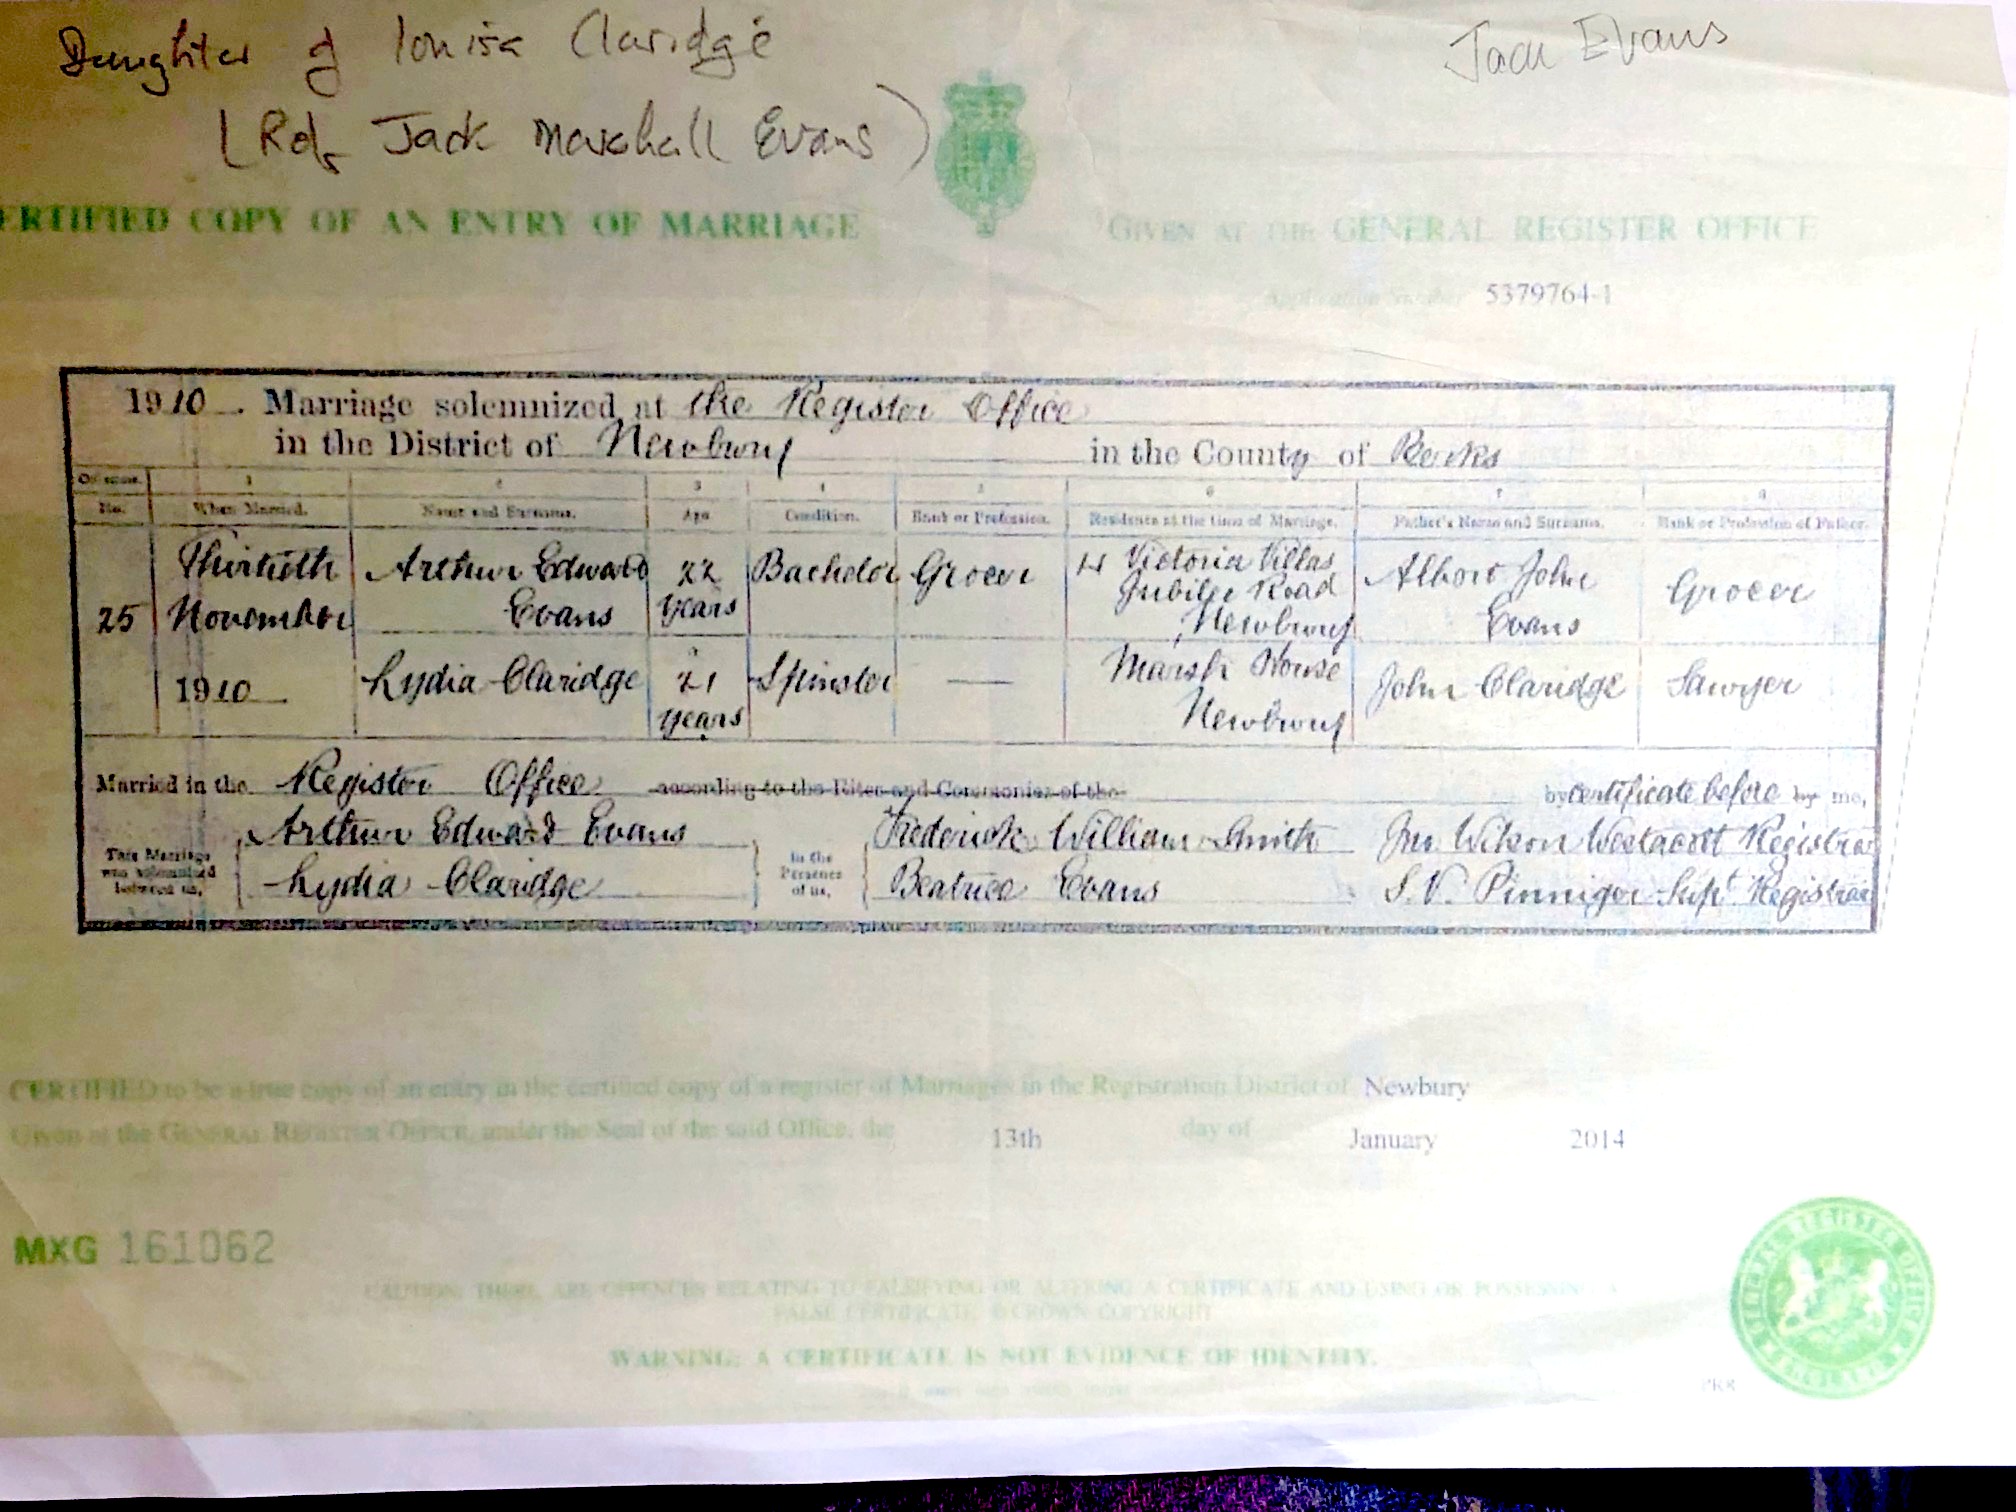 Daughter of Louisa Claridge
Jack Evans
(Ref. Jack Marshall Evans)
ERTIFIED COPY OF AN ENTRY OF MARRIAGE
GIVEN AT THE GENERAL REGISTER OFFICE
Application Number 5379764-1
1910. Marriage solemnized at the Register Office
in the District of Newbury in the County of Berks
No. When Married. Name and Surname. Age Condition. Rank or Profession. Residence at the time of Marriage. Father's Name and Surname. Rank or Profession of Father.
25
Thirtieth November 1910
Arthur Edward Evans
22 years
Bachelor
Grocer
4 Victoria Villas
Jubilee Road
Newbury
Albert John Evans
Grocer
Lydia Claridge
21 years
Spinster
—
Marsh House
Newbury
John Claridge
Sawyer
Married in the Register Office according to the Rites and Ceremonies of the by certificate before by me,
This Marriage
was solemnized
between us,
Arthur Edward Evans
Lydia Claridge
In the
Presence
of us,
Frederick William Smith
Beatrice Evans
Jno Wilson Westacott Registrar
S. V. Pinniger Supt Registrar
CERTIFIED to be a true copy of an entry in the certified copy of a register of Marriages in the Registration District of Newbury
Given at the GENERAL REGISTER OFFICE, under the Seal of the said Office, the 13th day of January 2014
MXG 161062
CAUTION: THERE ARE OFFENCES RELATING TO FALSIFYING OR ALTERING A CERTIFICATE AND USING OR POSSESSING A
FALSE CERTIFICATE. © CROWN COPYRIGHT
WARNING: A CERTIFICATE IS NOT EVIDENCE OF IDENTITY.